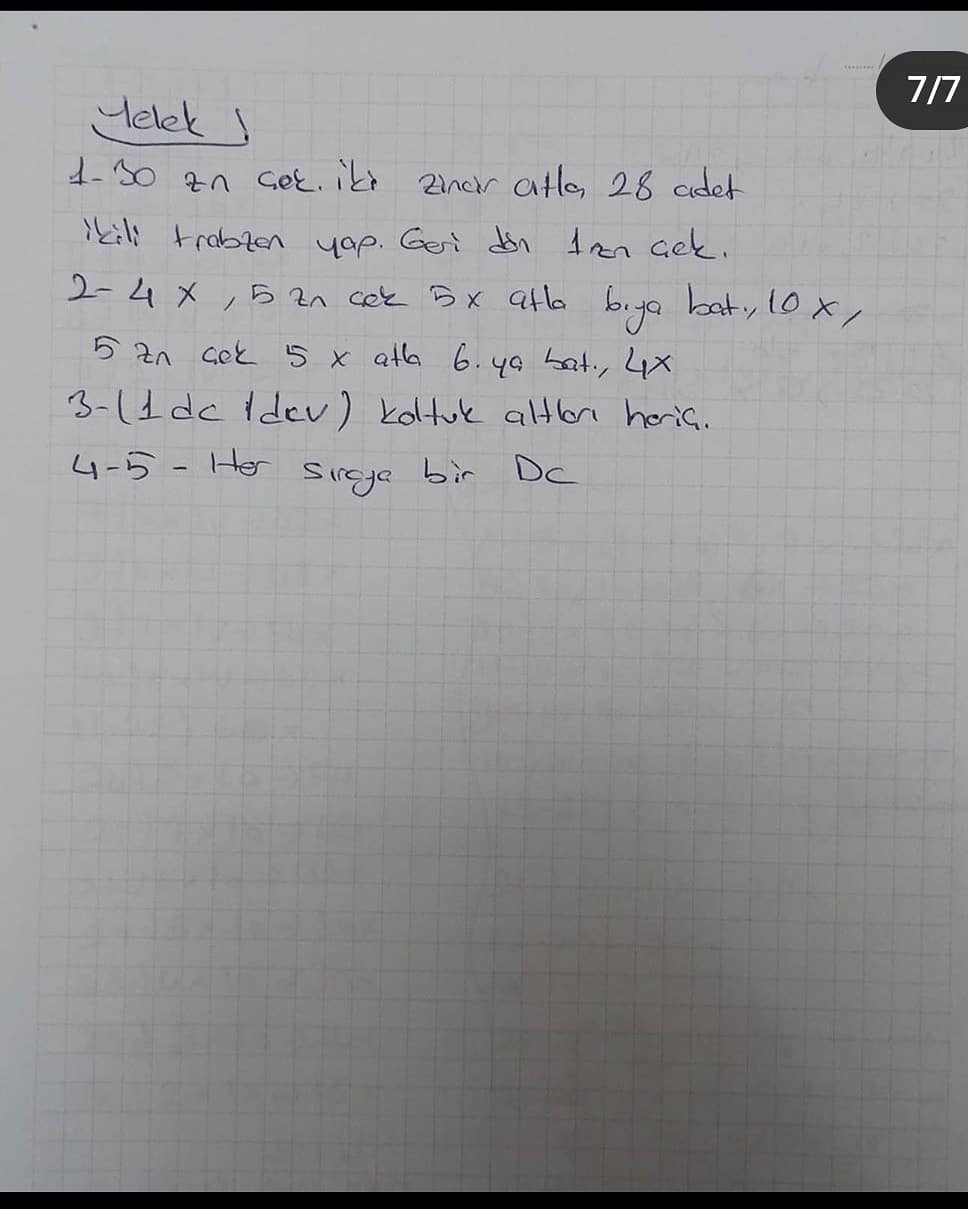 7/7
Yelek
1-30 zn çek. iki zincir atla, 28 adet
ikili trabzan yap. Geri dön 1 zn çek.
2- 4 x, 5 zn çek 5 x atla 6.ya bat., 10 x,
5 zn çek 5 x atla 6.ya bat., 4x
3-(1 dc 1dcv) koltuk altları hariç.
4-5 - Her sıraya bir DC